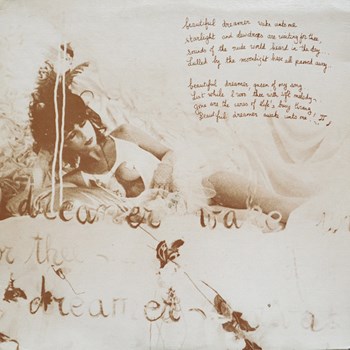 beautiful dreamer wake unto me
starlight and dewdrops are waiting for thee,
sounds of the rude world heard in the day...
Lulled by the moonlight have all passed away.
beautiful dreamer, queen of my song
list while I woo thee with soft melody,
gone are the cares of life's busy throng
Beautiful dreamer awake unto me!
dreamer wake
or thee
dreamer